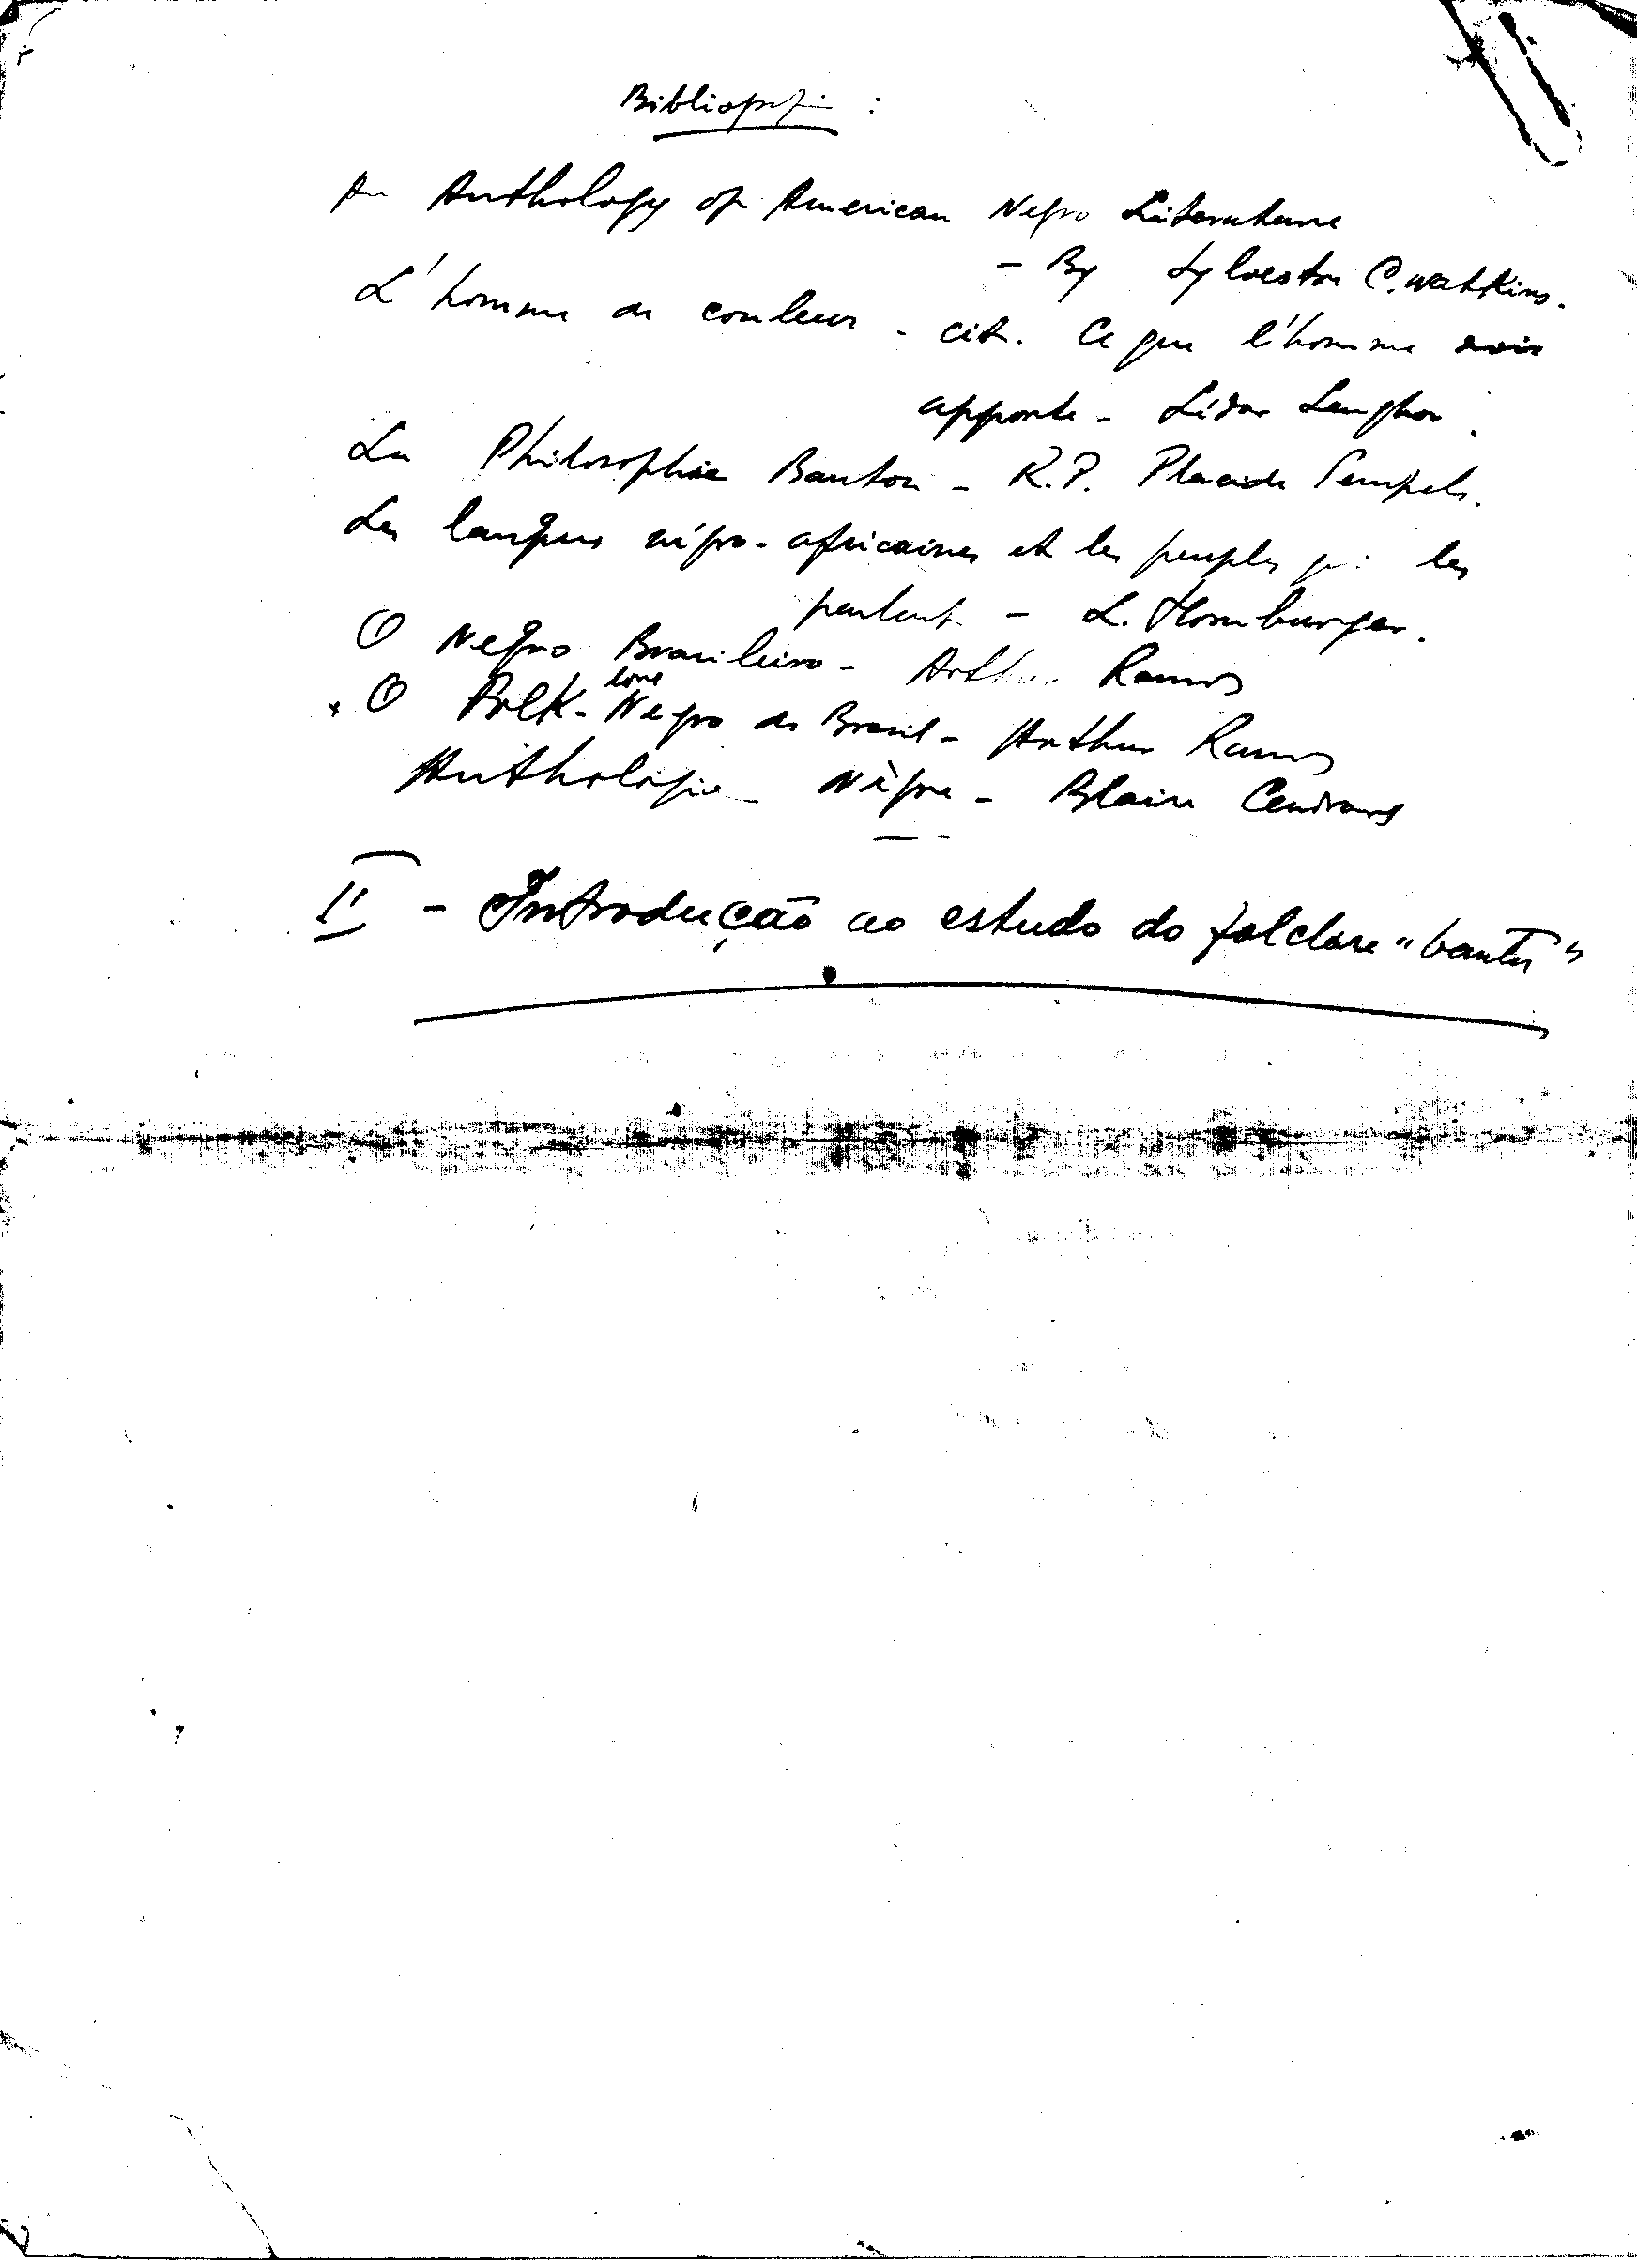 Bibliografia :
An Anthology of American Negro Literature
- By Sylvestre C. Watkins.
L'homme de couleur - cit. Ce que l'homme noir
apporte - Lédar Senghor.
La Philosophie Bantou - R.P. Placide Tempels.
Les langues négro-africaines et les peuples qui les
parlent - L. Homburger.
O Negro Brasileiro - Arthur Ramos
x O Folk-lore Negro do Brasil - Arthur Ramos
Anthologie Nègre - Blaise Cendrars
II - Introdução ao estudo do folclore "bantu"